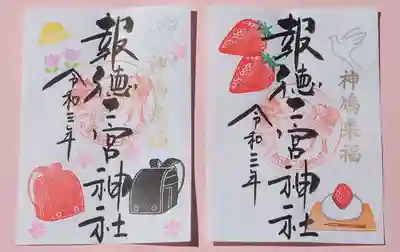 報徳二宮神社
令和三年
神鳩来福
報徳二宮神社
令和三年